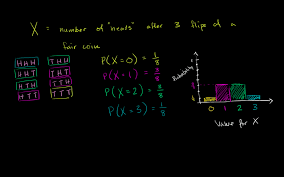 X = number of "heads" after 3 flips of a
fair coin
HHH THH
HHT THT
HTH TTH
HTT TTT
P(X=0) = 1/8
P(X=1) = 3/8
P(X=2) = 3/8
P(X=3) = 1/8
Probability
0 1 2 3
Value for X